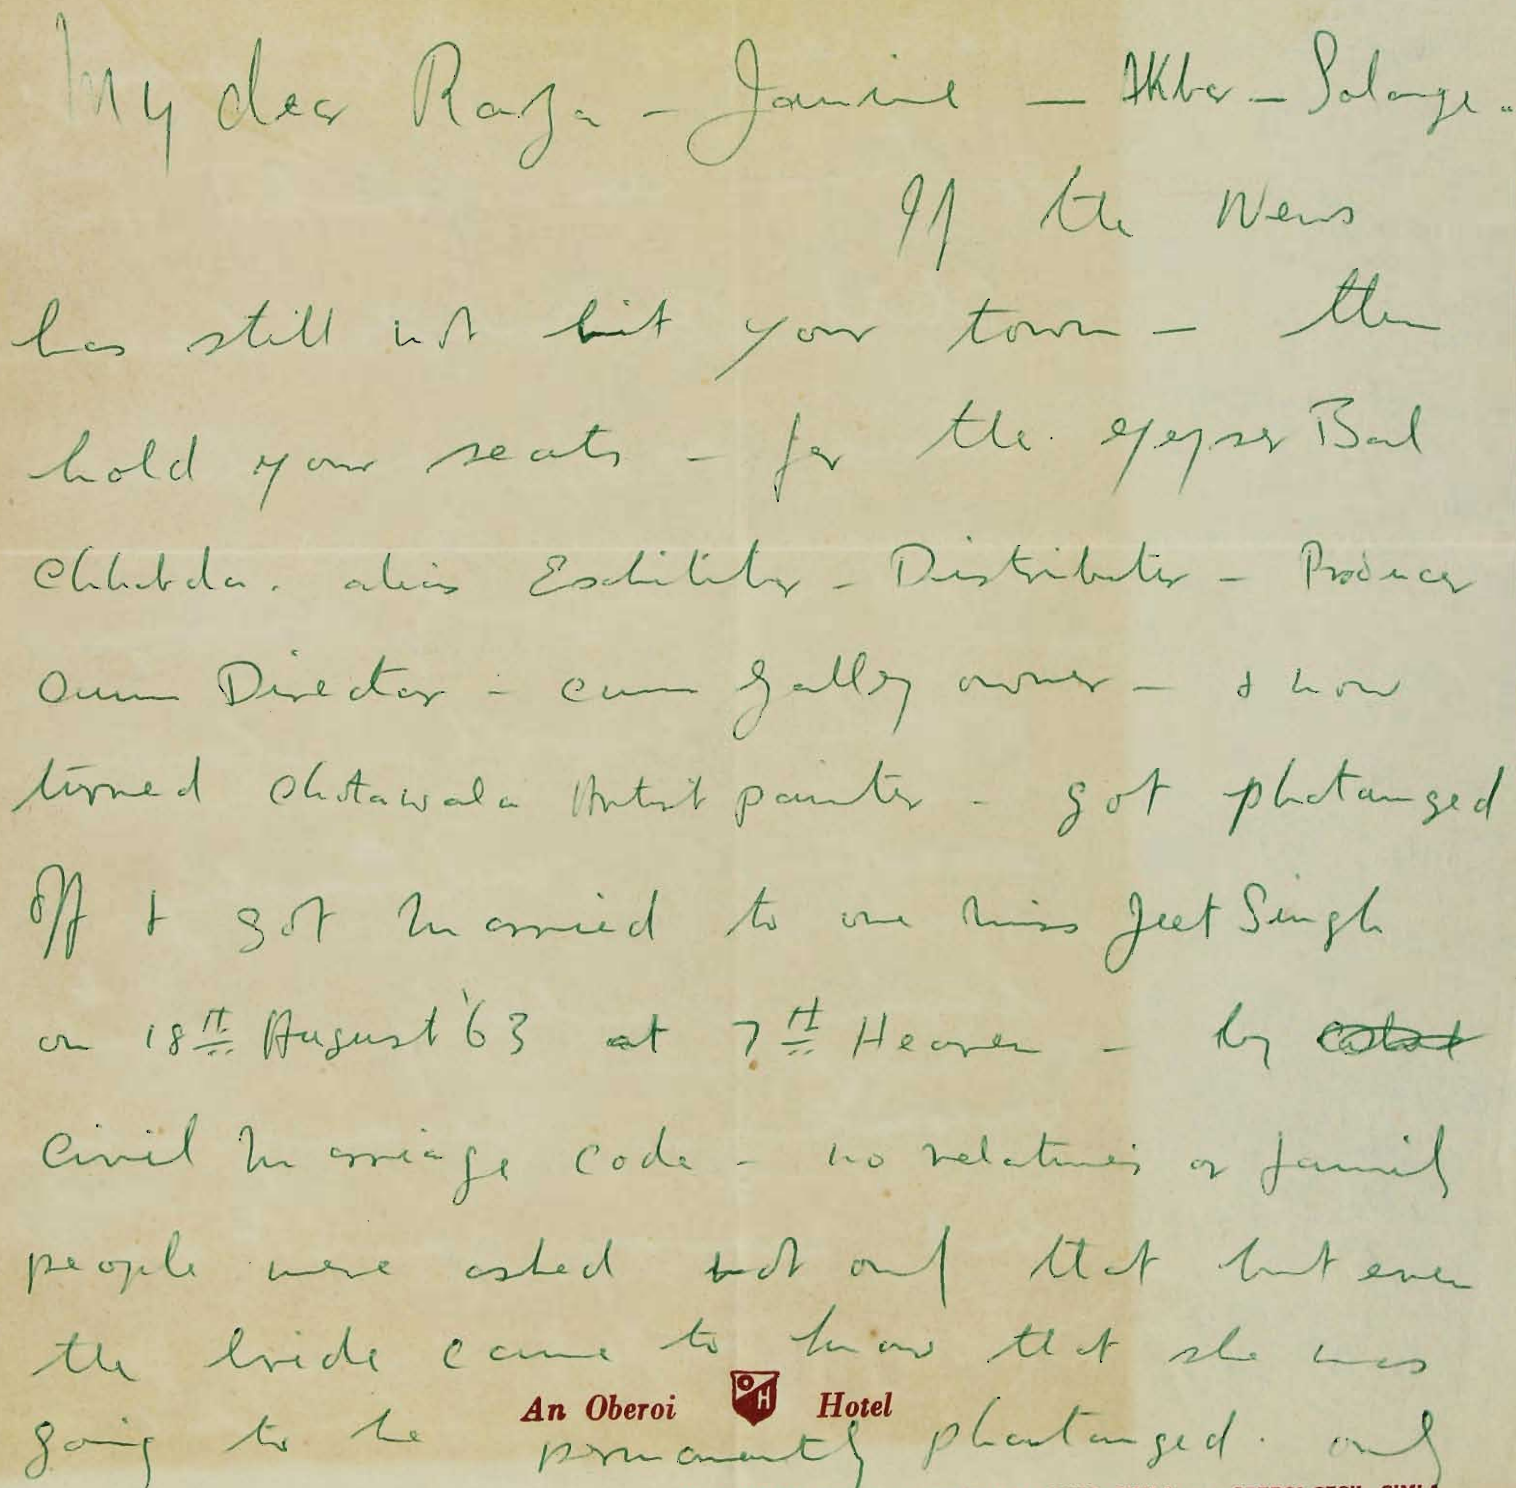 My dear Raza - Janine - Akbar - Solange -
If the News
has still not hit your town - then
hold your seats - for the geyser Bal
Chhabda. alias Exhibitor - Distributor - Producer
Cum Director - cum gallery owner - & now
turned Chotawala Artist painter - got phatanged
off & got married to one Miss Jeet Singh
on 18th August '63 at 7th Heaven - by
Civil Marriage Code - no relatives or family
people were asked not only that but even
the bride came to know that she was
An Oberoi Hotel
going to be permanently phatanged. only